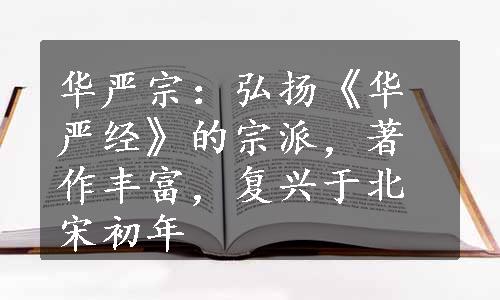 华严宗：弘扬《华
严经》的宗派，著
作丰富，复兴于北
宋初年